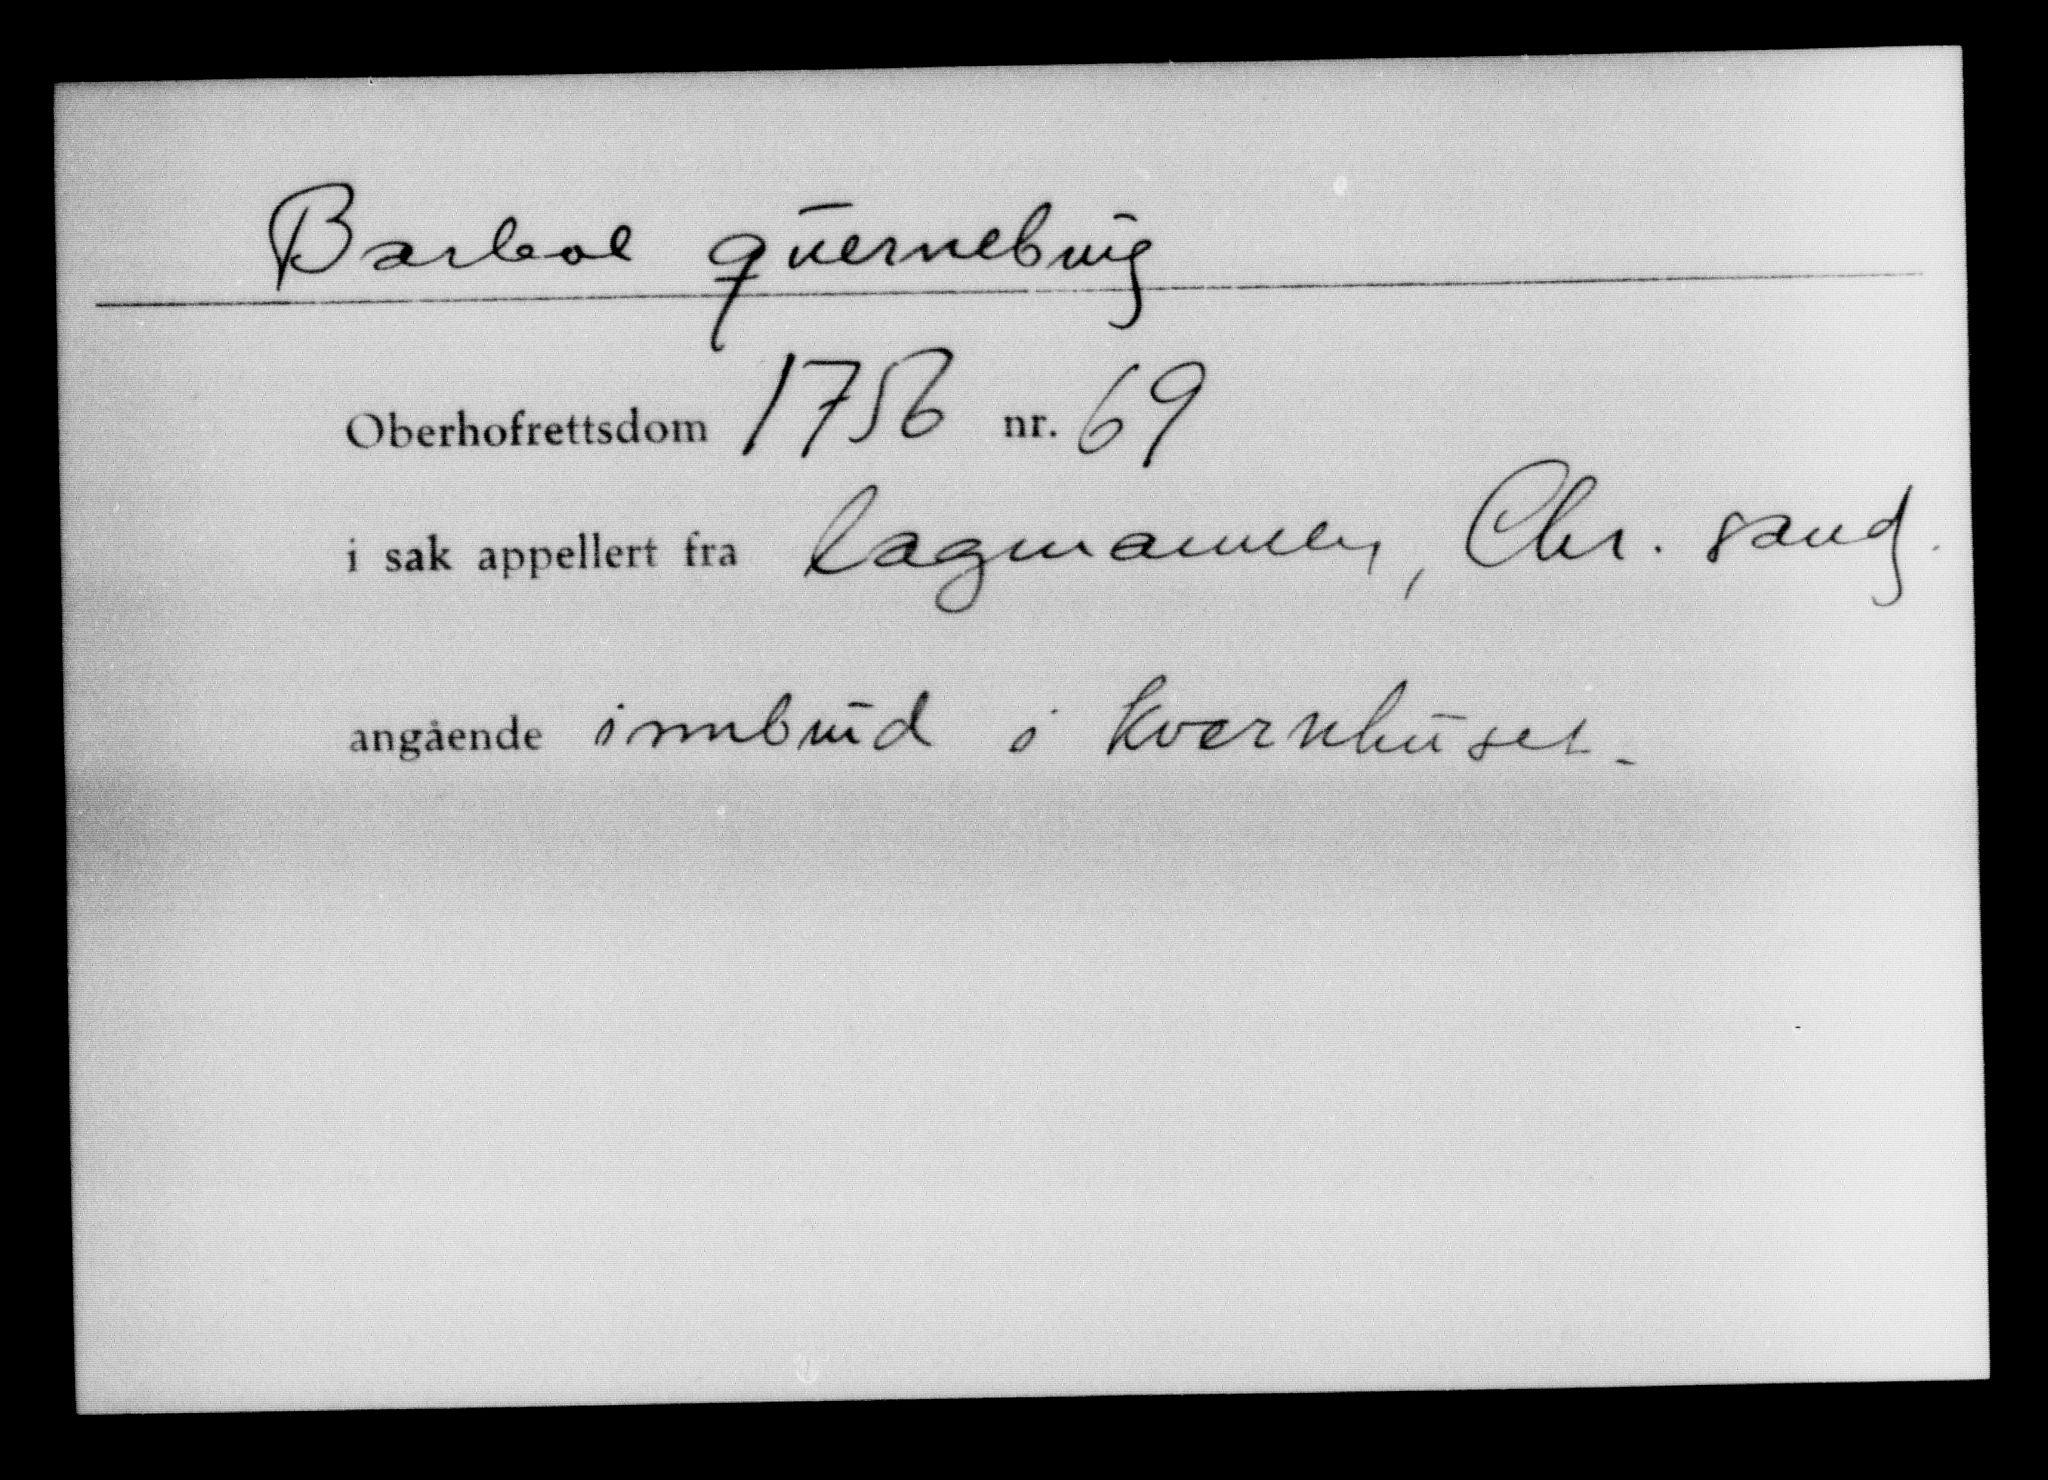 Barboe qvernebrug
Oberhofrettsdom 1756 nr. 69
i sak appellert fra lagmannen, Chr. sand.
angående innbrud i kvernhuset.